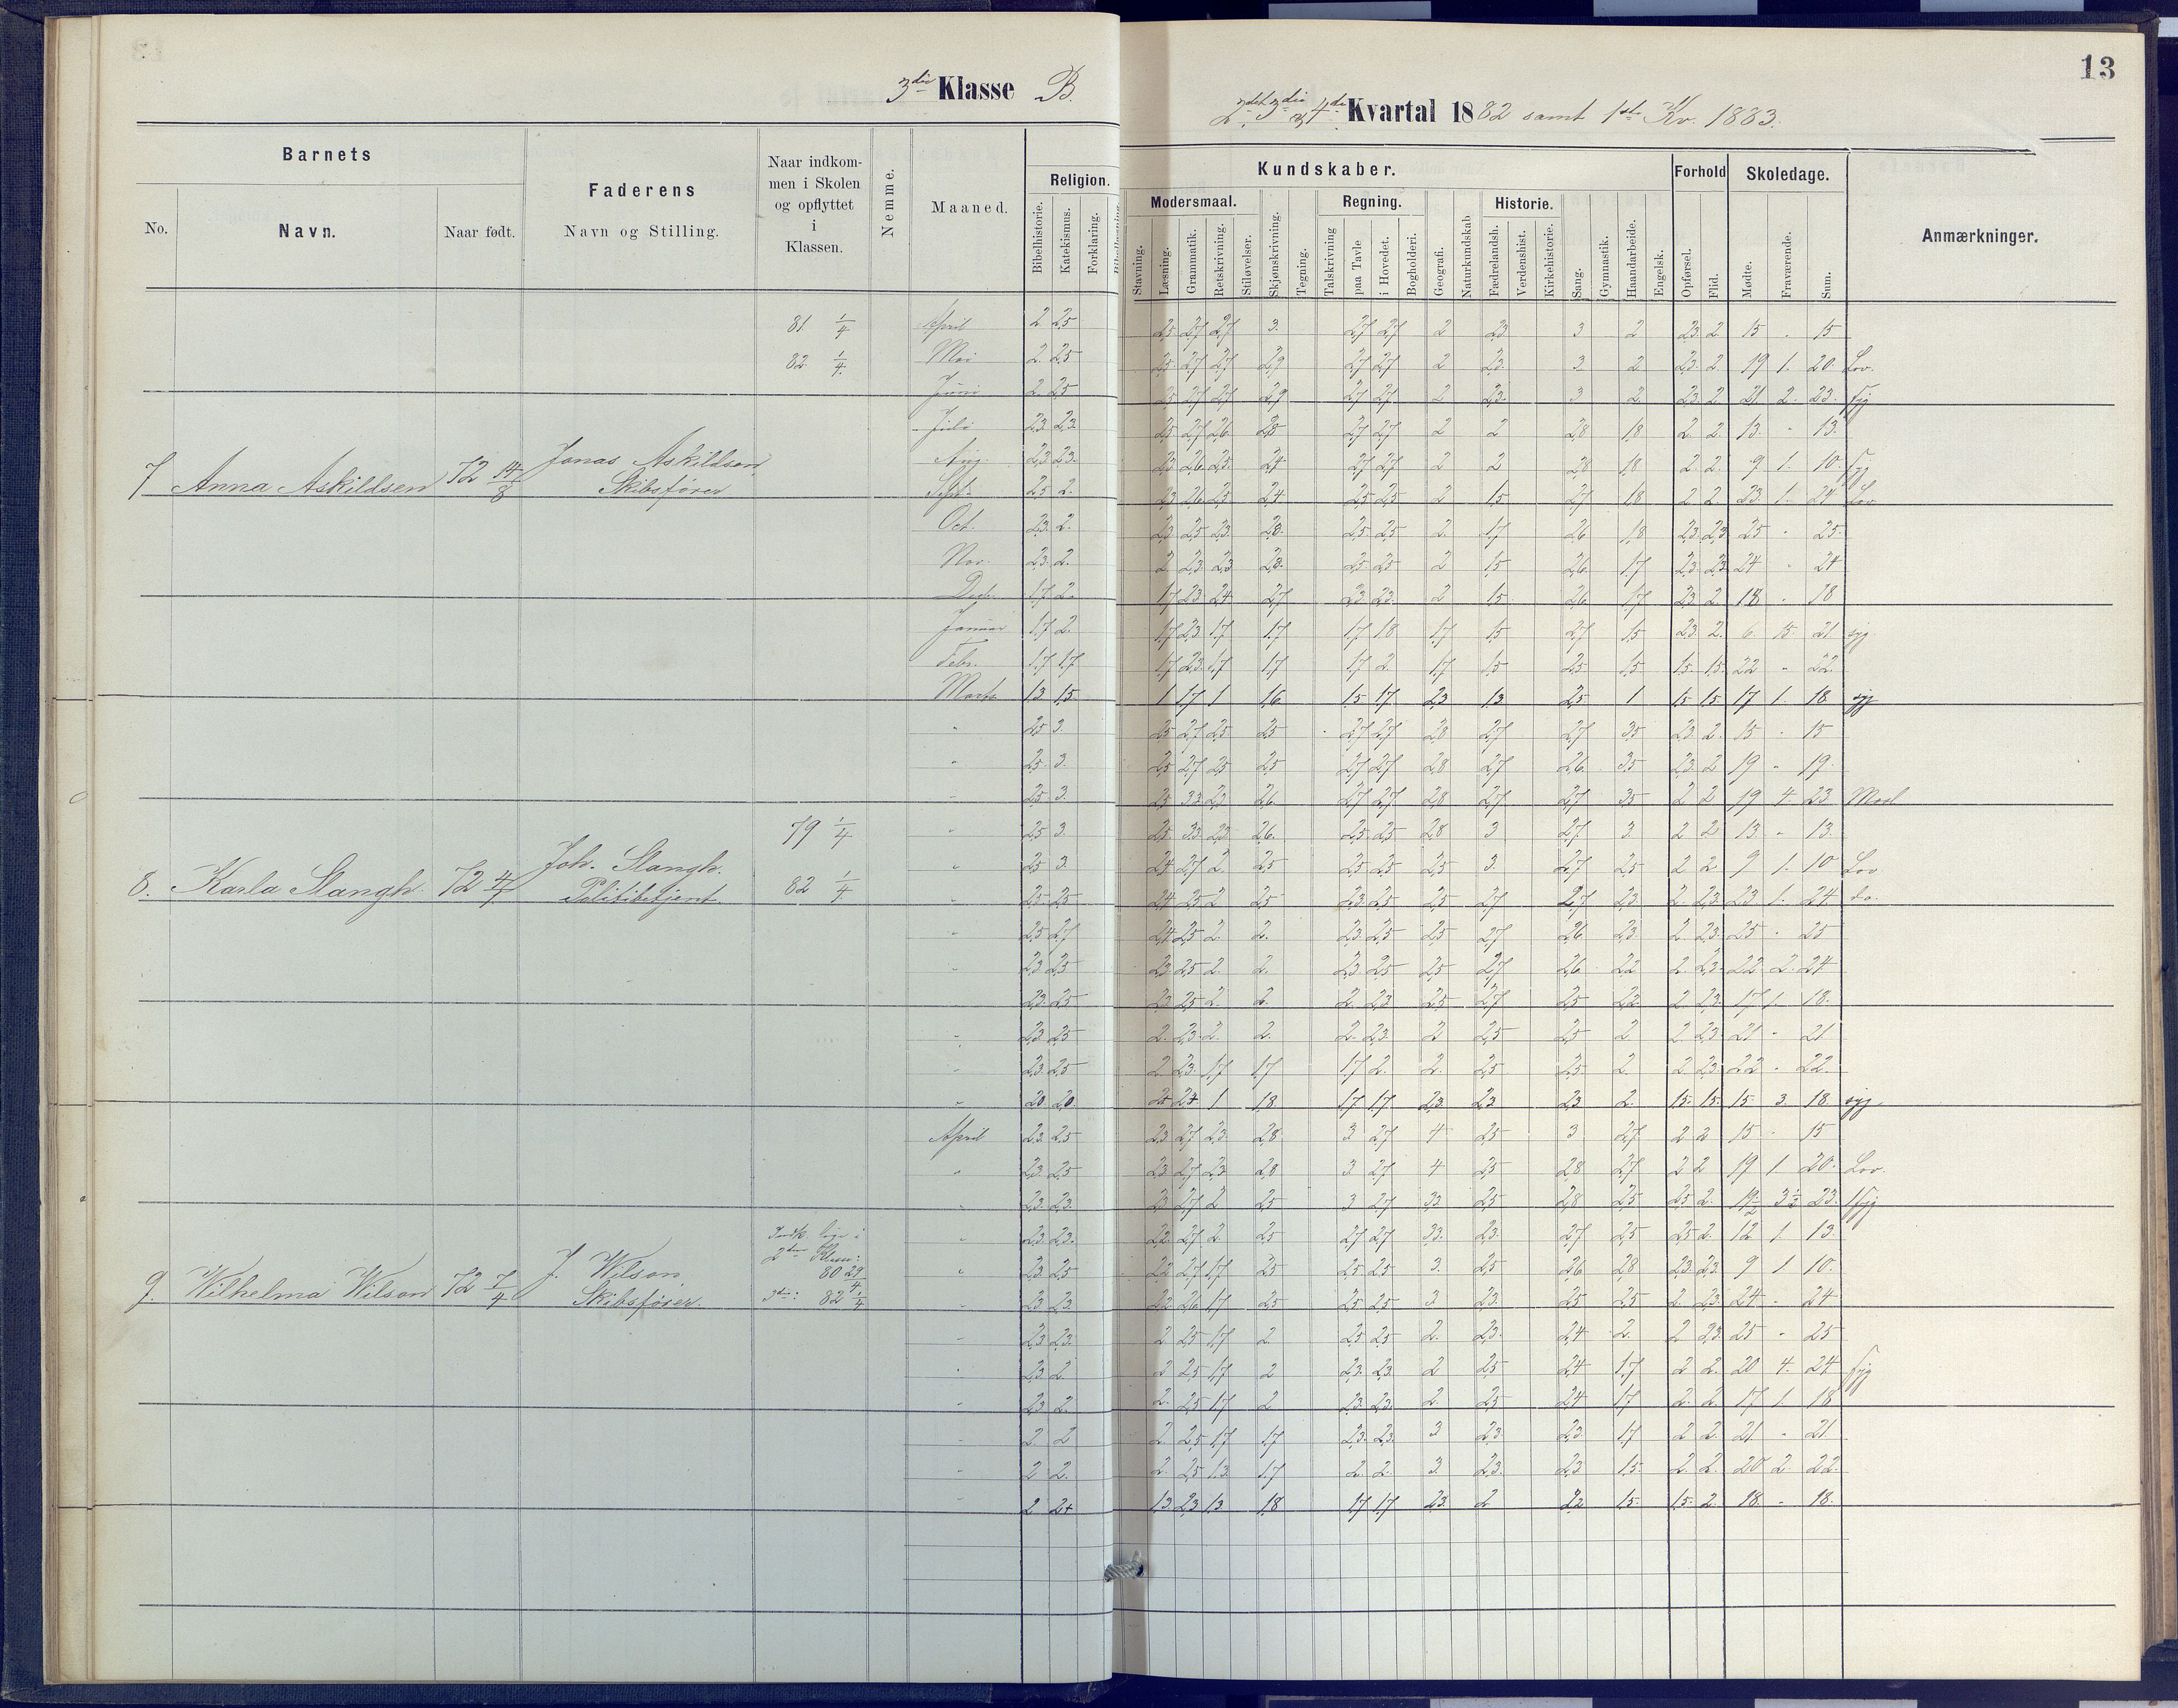 3die Klasse B.
13
2det 3die & 4de Kvartal 1882 samt 1ste Kv. 1883.
Barnets
No.
Navn.
Naar født.
Faderens
Navn og Stilling.
Naar indkom-
men i Skolen
og opflyttet
i
Klassen.
Nemme.
Maaned.
Kundskaber.
Religion.
Bibelhistorie.
Katekismus.
Forklaring.
Modersmaal.
Stavning.
Læsning.
Grammatik.
Retskrivning.
Stiløvelser.
Skjønskrivning.
Tegning.
Regning.
Talskrivning
paa Tavle
i Hovedet.
Bogholderi.
Geografi.
Naturkundskab
Historie.
Fædrelandsh.
Verdenshist.
Kirkehistorie.
Sang.
Gymnastik.
Haandarbeide.
Engelsk.
Forhold
Opførsel.
Flid.
Skoledage.
Mødte.
Fraværende.
Sum.
Anmærkninger.
7 Anna Askildsen 72 14/8 Jonas Askildsen
Skibsfører
81 1/4
82 1/4
April 2 2,5 2,5 2,7 2,7 3. 2,7 2,7 2 2,3 3 2 2,3 2 15 " 15
Mai 2. 2,5 2,5 2,7 2,7 2,9 2,7 2,7 2 2,3 3 2 2,3 2. 19 1. 20. Lov.
Juni 2. 2,5 2,5 2,7 2,7 2,9 2,7 2,7 2 2,3 3 2. 2,3 2 21 2. 23. Syg
Juli 2,3 2,3 2,5 2,7 2,6 2,8 2,7 2,7 2 2 2,8 1,8 2. 2. 13. " 13.
Aug. 2,3 2,3 2,3 2,6 2,5 2,4 2,7 2,7 2 2 2,8 1,8 2. 2. 9 1. 10. Syg
Sept. 2,5 2. 2,3 2,6 2,5 2,4 2,5 2,5 2 1,5 2,7 1,8 2 2. 23. 1. 24 Lov
Oct. 2,3 2. 2,3 2,5 2,3 2,8 2,5 2,5 2. 1,7 2,6 1,8 2,3 2,3 25 " 25.
Nov. 2,3 2. 2 2,3 2,3 2,5 2,5 2 1,5 2,6 1,7 2,3 2,3 24 " 24
Decbr. 1,7 2. 1,7 2,3 2,4 2,7 2,3 2,3 2 1,5 2,6 1,7 2,3 2. 18 " 18
Januar 1,7 2. 1,7 2,3 1,7 1,7 1,7 1,8 1,7 1,5 2,7 1,5 2,3 2. 6. 15. 21 syg.
Febr. 1,7 1,7 1,7 2,3 1,7 1,7 1,7 2. 1,7 1,5 2,5 1,5 1,5 1,5 22 " 22.
Marts 1,3 1,5 1 1,7 1 1,6 1,5 1,7 2,3 1,3 2,5 1 1,5 1,5 17 1. 18 syg
8. Karla Stangh. 72 4/4 Joh. Stangh.
Politibetjent
79 1/4
82 1/4
" 2,5 3. 2,5 2,7 2,5 2,5 2,7 2,7 2,8 2,7 2,7 3,5 2,3 2. 15 " 15
" 2,5 3. 2,5 2,7 2,5 2,5 2,7 2,7 2,8 2,7 2,6 3,5 2,3 2 19 " 19.
" 2,5 3. 2,5 3,3 2,3 2,6 2,7 2,7 2,8 2,7 2,7 3,5 2 2 19 4. 23
" 2,5 3. 2,5 3,3 2,3 2,6. 2,5 2,5 2,8 3 2,7 3. 2 2 13. " 13.
" 2,5 3. 2,4 2,7 2. 2,5 2,5 2,5 2,5 3. 2,7 2,5 2 2 9 1. 10 Lov
" 2,5 2,5 2,4 2,5 2 2,5 2,3 2,5 2,5 2,7 2,7 2,3 2. 2,3 23 1. 24. do.
" 2,5 2,7 2,4 2,5 2. 2. 2,3 2,5 2,5 2,7 2,6 2,3 2. 2,3 25 " 25
" 2,3 2,5 2,3 2,5 2. 2. 2,3 2,5 2,5 2,7 2,6 2,2 2. 2,3 22 2. 24
" 2,3 2,5 2,3 2,5 2. 2. 2. 2,3 2,5 2,7 2,5 2,2 2. 2,3 17 1. 18.
" 2,3 2,5 2. 2,3 2. 2. 2. 2,3 2 2,5 2,5 2 2. 2,3 21 " 21
" 2,3 2,5 2. 2,3 1,7 1,7 1,7 2. 2. 2,5 2,5 2. 2 2,3 22 " 22.
" 2,0 2,0 2,4 1 1,8 1,7 1,7 2,3 2,3 2,3 2. 1,5 1,5 15. 3. 18. syg
9. Wilhelma Wilson 72 7/4 J. Wilson
Skibsfører.
Indk. lige i
2den Klas:
80 29/4
3die: 82 1/4
April 2,3 2,5 2,3 2,7 2,3 2,8 3 2,7 4 2,5 3 2,7 2 2 15 " 15
" 2,3 2,5 2,3 2,7 2,3 2,8 3 2,7 4 2,5 2,8 2,7 2 2 19 1 20. Lov.
" 2,3 2,3 2,3 2,7 2 2,5 3 2,7 3,3 2,5 2,8 2,5 2,5 2. 19½ 3½ 23. Syg
" 2,3 2,3 2,2 2,7 2. 2,5 2,7 2,7 3,3 2,3 2,7 2,5 2,5 2. 12 1. 13.
" 2,3 2,5 2,2 2,7 1,7 2,5 2,5 2,5 3. 2,5 2,6 2,8 2,3 2,3 9 1 10.
" 2,3 2,3 2,2 2,6 1,7 2,5 2,5 2,5 3. 2,3 2,5 2,5 2. 2,3 24 " 24
" 2,3 2,3 2. 2,5 1,7 2 2,5 2,5 2. 2,3 2,4 2. 2 2,3 25 " 25
" 2,3 2. 2 2,5 1,7 2 2,3 2,3 2 2,5 2,4 1,7 2 2. 20 4. 24 Syg
" 2,3 2. 2. 2,5 1,7 2 2,3 2,3 2. 2,5 2,4 1,7 2. 2. 17 1. 18
" 2. 2 2. 2,5 1,7 1,7 2,3 2,3 3 2,3 2,3 1,7 2 2. 21 " 21.
" 2 2. 2. 2,5 1,3 1,7 2. 2. 3. 2,3 2,3 1,5 2. 2. 20 2. 22.
" 2 2+ 1,3 2,3 1,3 1,8 1,7 1,7 2,3 2 2,2 1,5 1,5 2. 18. " 18.